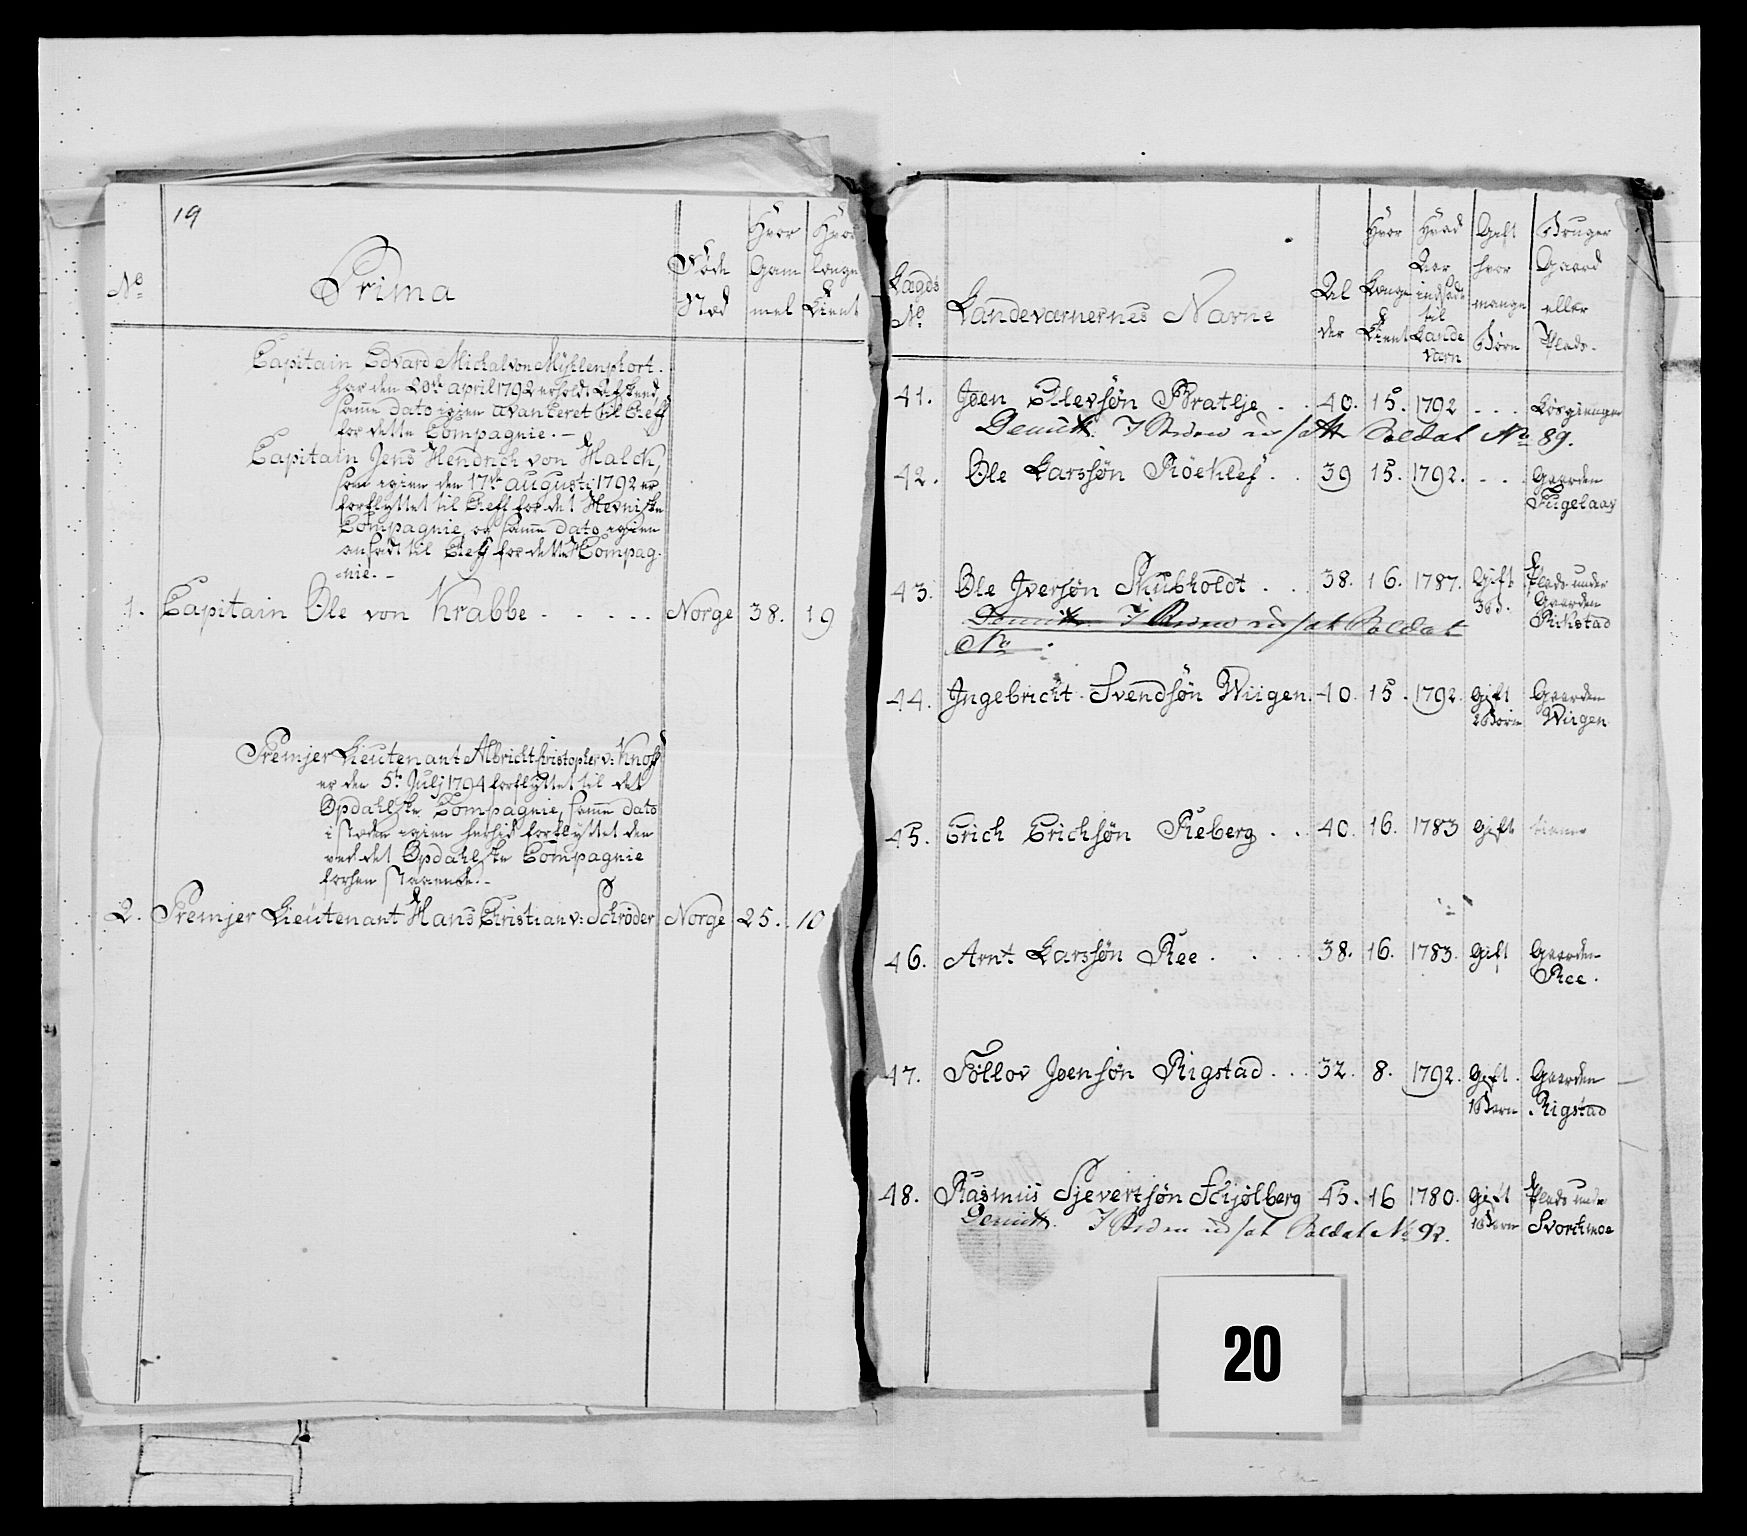 19
No
Prima
Føde
Stæd
Hvor
Gam
mel
Hvor
længe
tient
Capitain Edvard Michal von Mühlenphort.
har den 20de april 1792 erholdt Afskeed,
samme dato igien avanceret til Cheff
for dette Compagnie. –
Capitain Jens Hendrich von Halck,
som igien den 17de augusti 1792 er
forflyttet til Cheff for det Hevniske
Compagnie, og samme dato igien
ansadt til Cheff for dette Compag-
nie. –
1. Capitain Ole von Krabbe . . . . . Norge 38. 19
Premjer Lieutenant Albricht Cristopher v: Knoff
er den 5te Julj 1794 forflyttet til det
Opdahlske Compagnie, samme dato
i stæden igien herhid forflyttet den
ved det Opdahlske Compagnie
forhen staaende. –
2. Premjer Lieutenant Hans Christian v: Schrøder Norge 25. 10
Lægds
No
Landeværnernes Navne
Al
der
Hvor
Længe
tient
Hvad
Aar
indsadt
til
Lande
Værn
Gift
hvor
mange
Børn
Bruger
Gaard
eller
Plads.
41. Joen Ellevsøn Bratlje . . 40. 15. 1792 . . . Løsgienger
Demitt. I Steden indsatt Soldat No 89.
42. Ole Larssøn . . 39 15. 1792. . . . Gaarden
Fugelaas
43. Ole Jversøn Skubholdt . . . 38. 16. 1787. Gift Plads under
3 B. Gaarden
Rikstad
Demitt. I Steden indsat Soldat
No .
44. Jngebricht Svendsøn Wiigen. 40. 15. 1792. Gift Gaarden
2 Børn Wiigen
45. Erich Erichsøn Reberg . . 40. 16. 1783 Gift
46. Arnt Larssøn Ree . . . . 38. 16. 1783. Gift Gaarden
Ree.
47. Tøllov Joensøn Rigstad . . . 32. 8. 1792. Gift. Gaarden
1 Barn Rigstad
48. Rasmus Sjevertsøn Schjølberg 45. 16 1780. Gift Plads under
1 Barn Svorkmoe
Demitt. I Steden indsat Soldat No 92.
20